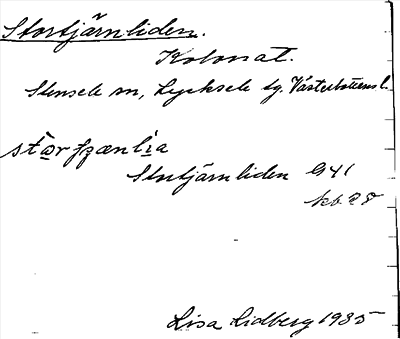 Stortjärnliden.
Kolonat.
Stensele sn, Lycksele tg. Västerbottens l.
Stortjärnliden G41
kb. 28
Lisa Lidberg 1935